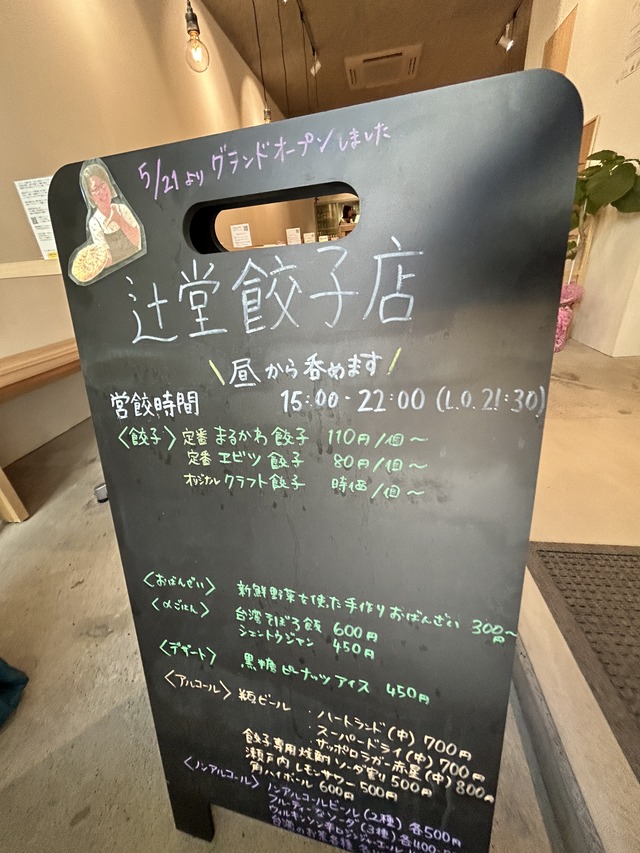 5/21より グランドオープンしました
辻堂餃子店
\昼から呑めます/
営餃時間 15:00-22:00 (L.O.21:30)
〈餃子〉 定番 まるかわ餃子 110円/個〜
定番 ヱビツ餃子 80円/個〜
オリジナル クラフト餃子 時価/個〜
〈おばんざい〉 新鮮野菜を使った手作りおばんざい 300〜円
〈〆ごはん〉 台湾そぼろ飯 600円
シェントウジャン 450円
〈デザート〉 黒糖ピーナッツアイス 450円
〈アルコール〉 瓶ビール ・ハートランド(中) 700円
・スーパードライ(中) 700円
・サッポロラガー赤星(中) 800円
餃子専用焼酎ソーダ割り 500円
瀬戸内レモンサワー 500円
角ハイボール 600円
〈ノンアルコール〉 ノンアルコールビール(2種) 各500円
フルティーなソーダ(3種) 各400円
ウィルキンソン辛口ジンジャーエール
台湾のお茶